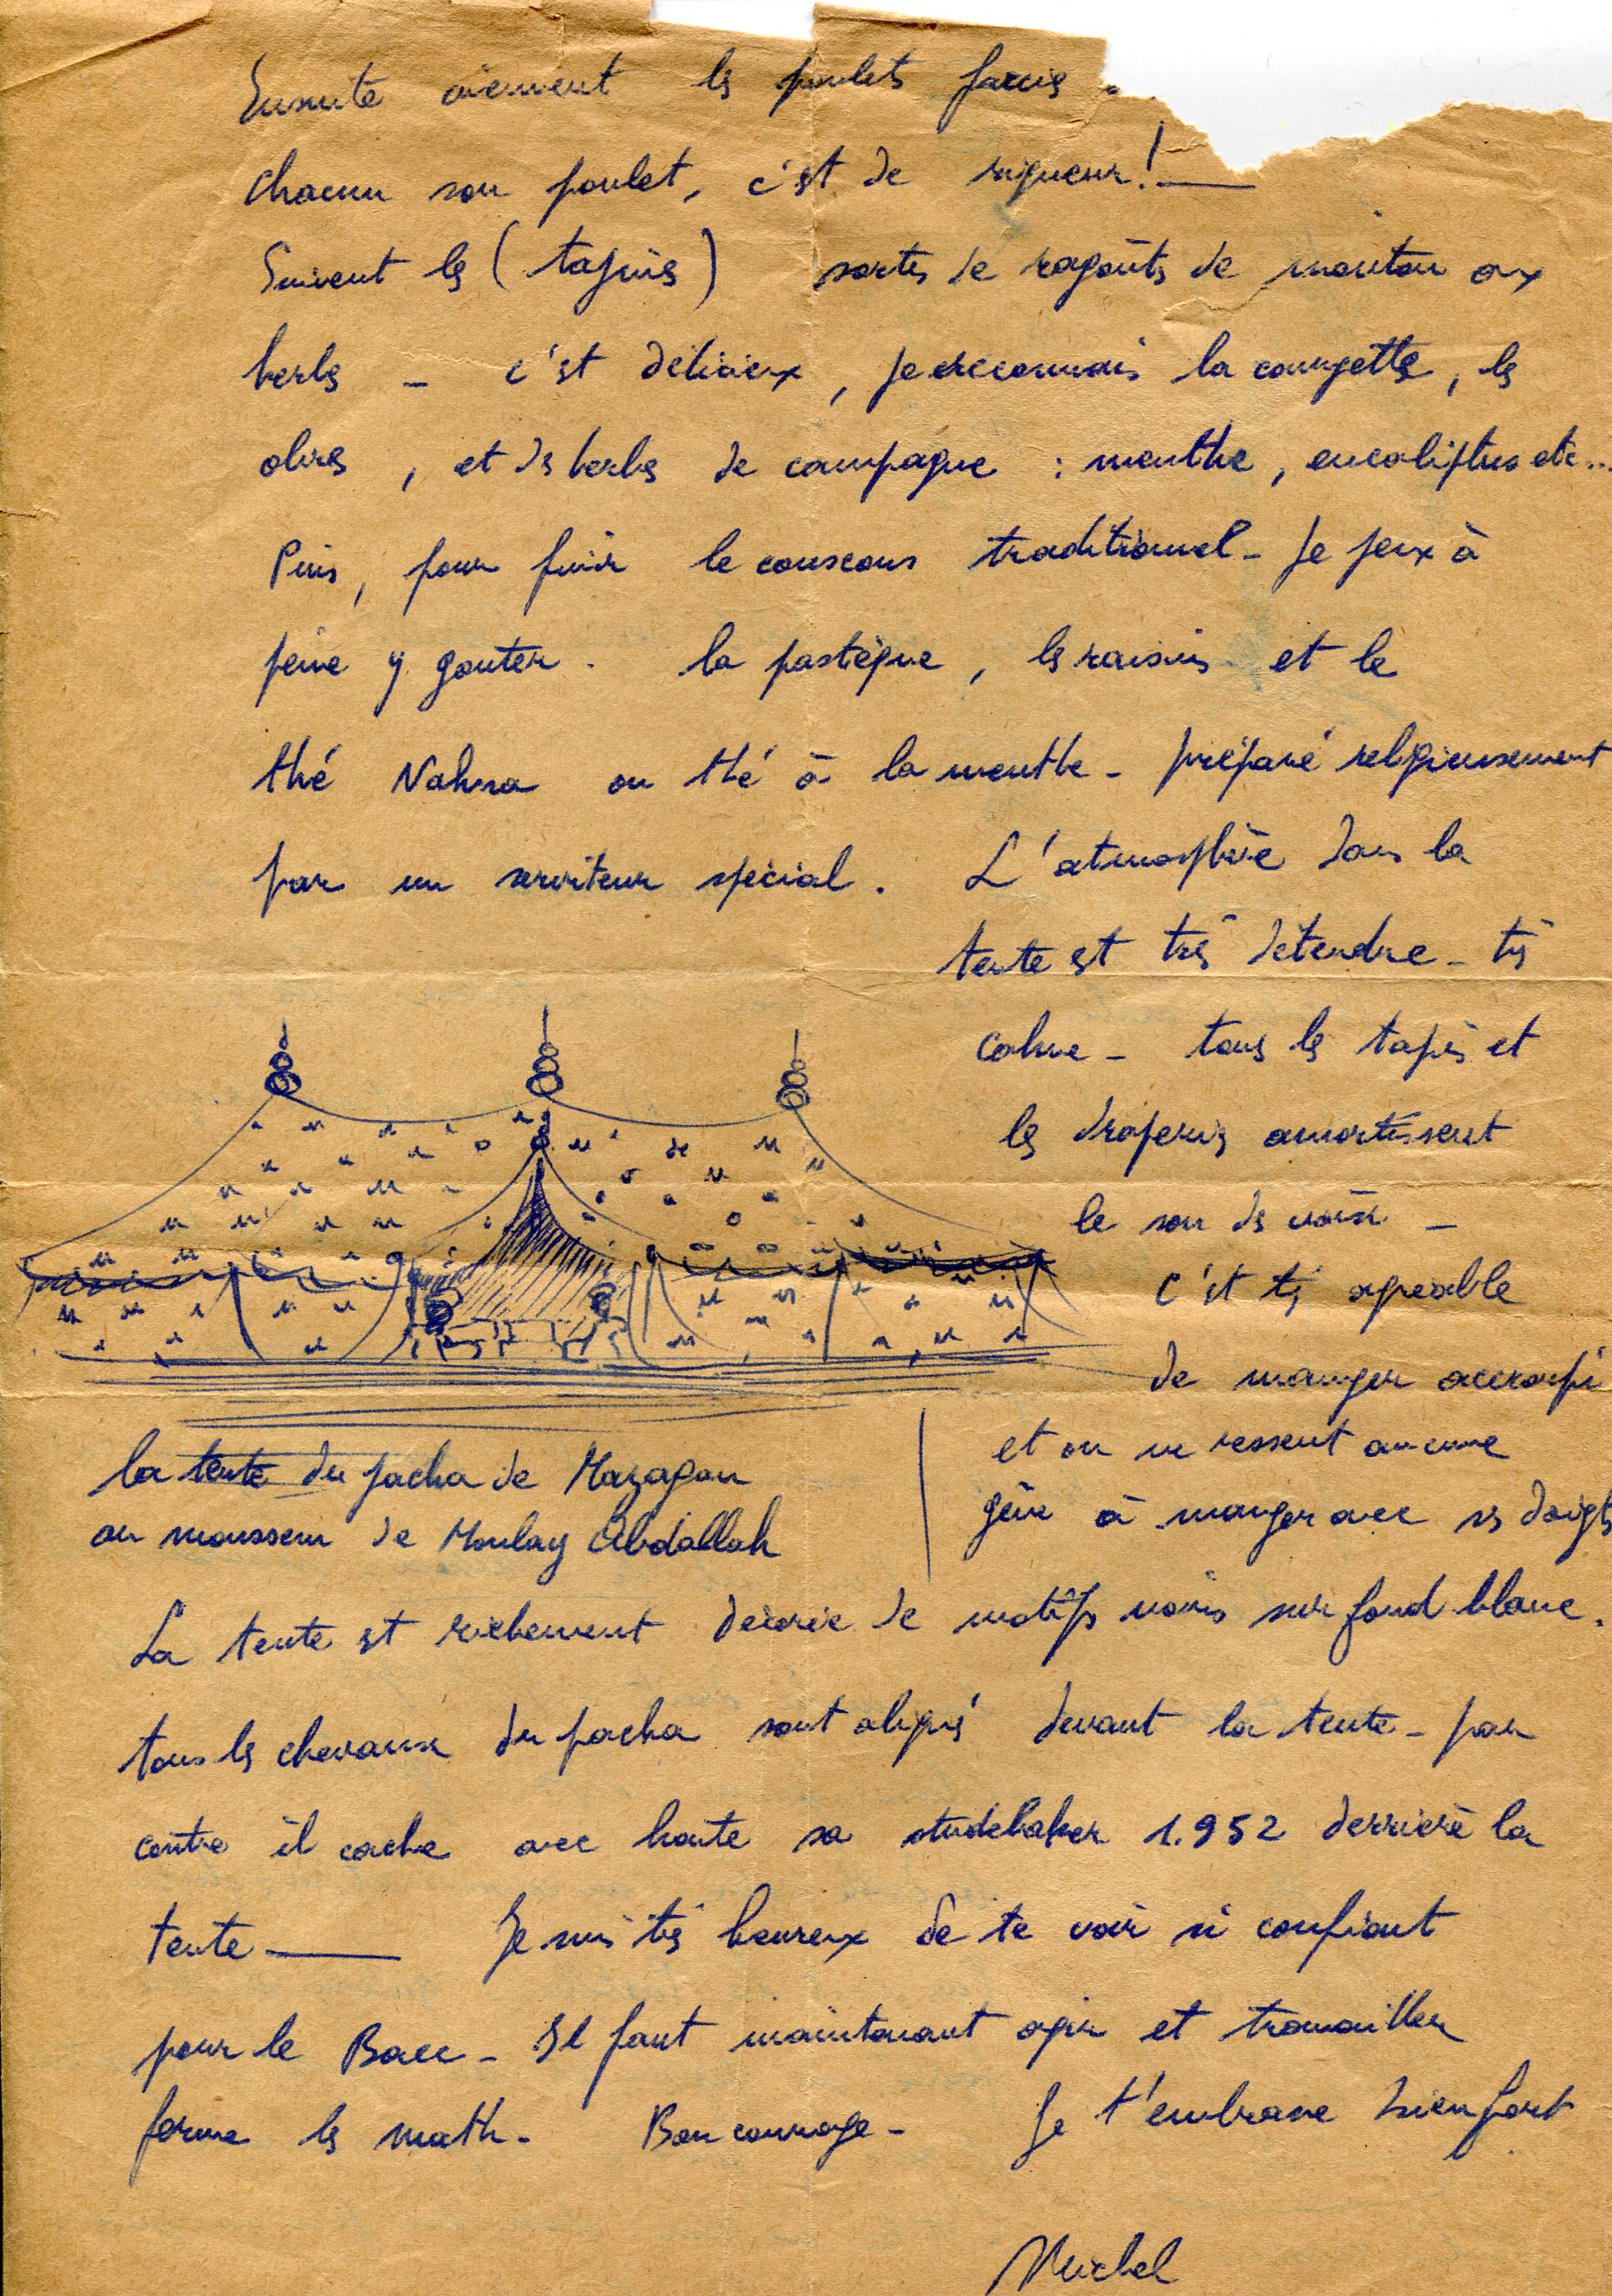 Ensuite viennent les poulets farcis.
Chacun son poulet, c'est de rigueur!
Suivent les (tajines) sortes de ragoûts de mouton ox
herbes - c'est délicieux, je reconnais la courgette, les
olives, et des herbes de campagne : menthe, eucaliptus etc...
Puis, pour finir le couscous traditionnel - Je peux à
peine y gouter. la pastèque, les raisins et le
thé Nahna ou thé à la menthe - préparé religieusement
par un serviteur spécial. L'atmosphère dans la
tente est très détendue - très
calme - tous les tapis et
les draperies amortissent
le son des voix -
c'est très agréable
de manger accroupi
et on ne ressent aucune
gêne à manger avec ses doigts
la tente du pacha de Mazagan
au moussem de Moulay Abdallah
La tente est richement décorée de motifs noirs sur fond blanc.
tous les chevaux du pacha sont alignés devant la tente - par
contre il cache avec honte sa studebaker 1.952 derrière la
tente — Je suis très heureux de te voir si confiant
pour le Bacc - Il faut maintenant agir et travailler
ferme les math - Bon courage - Je t'embrasse bien fort
Michel